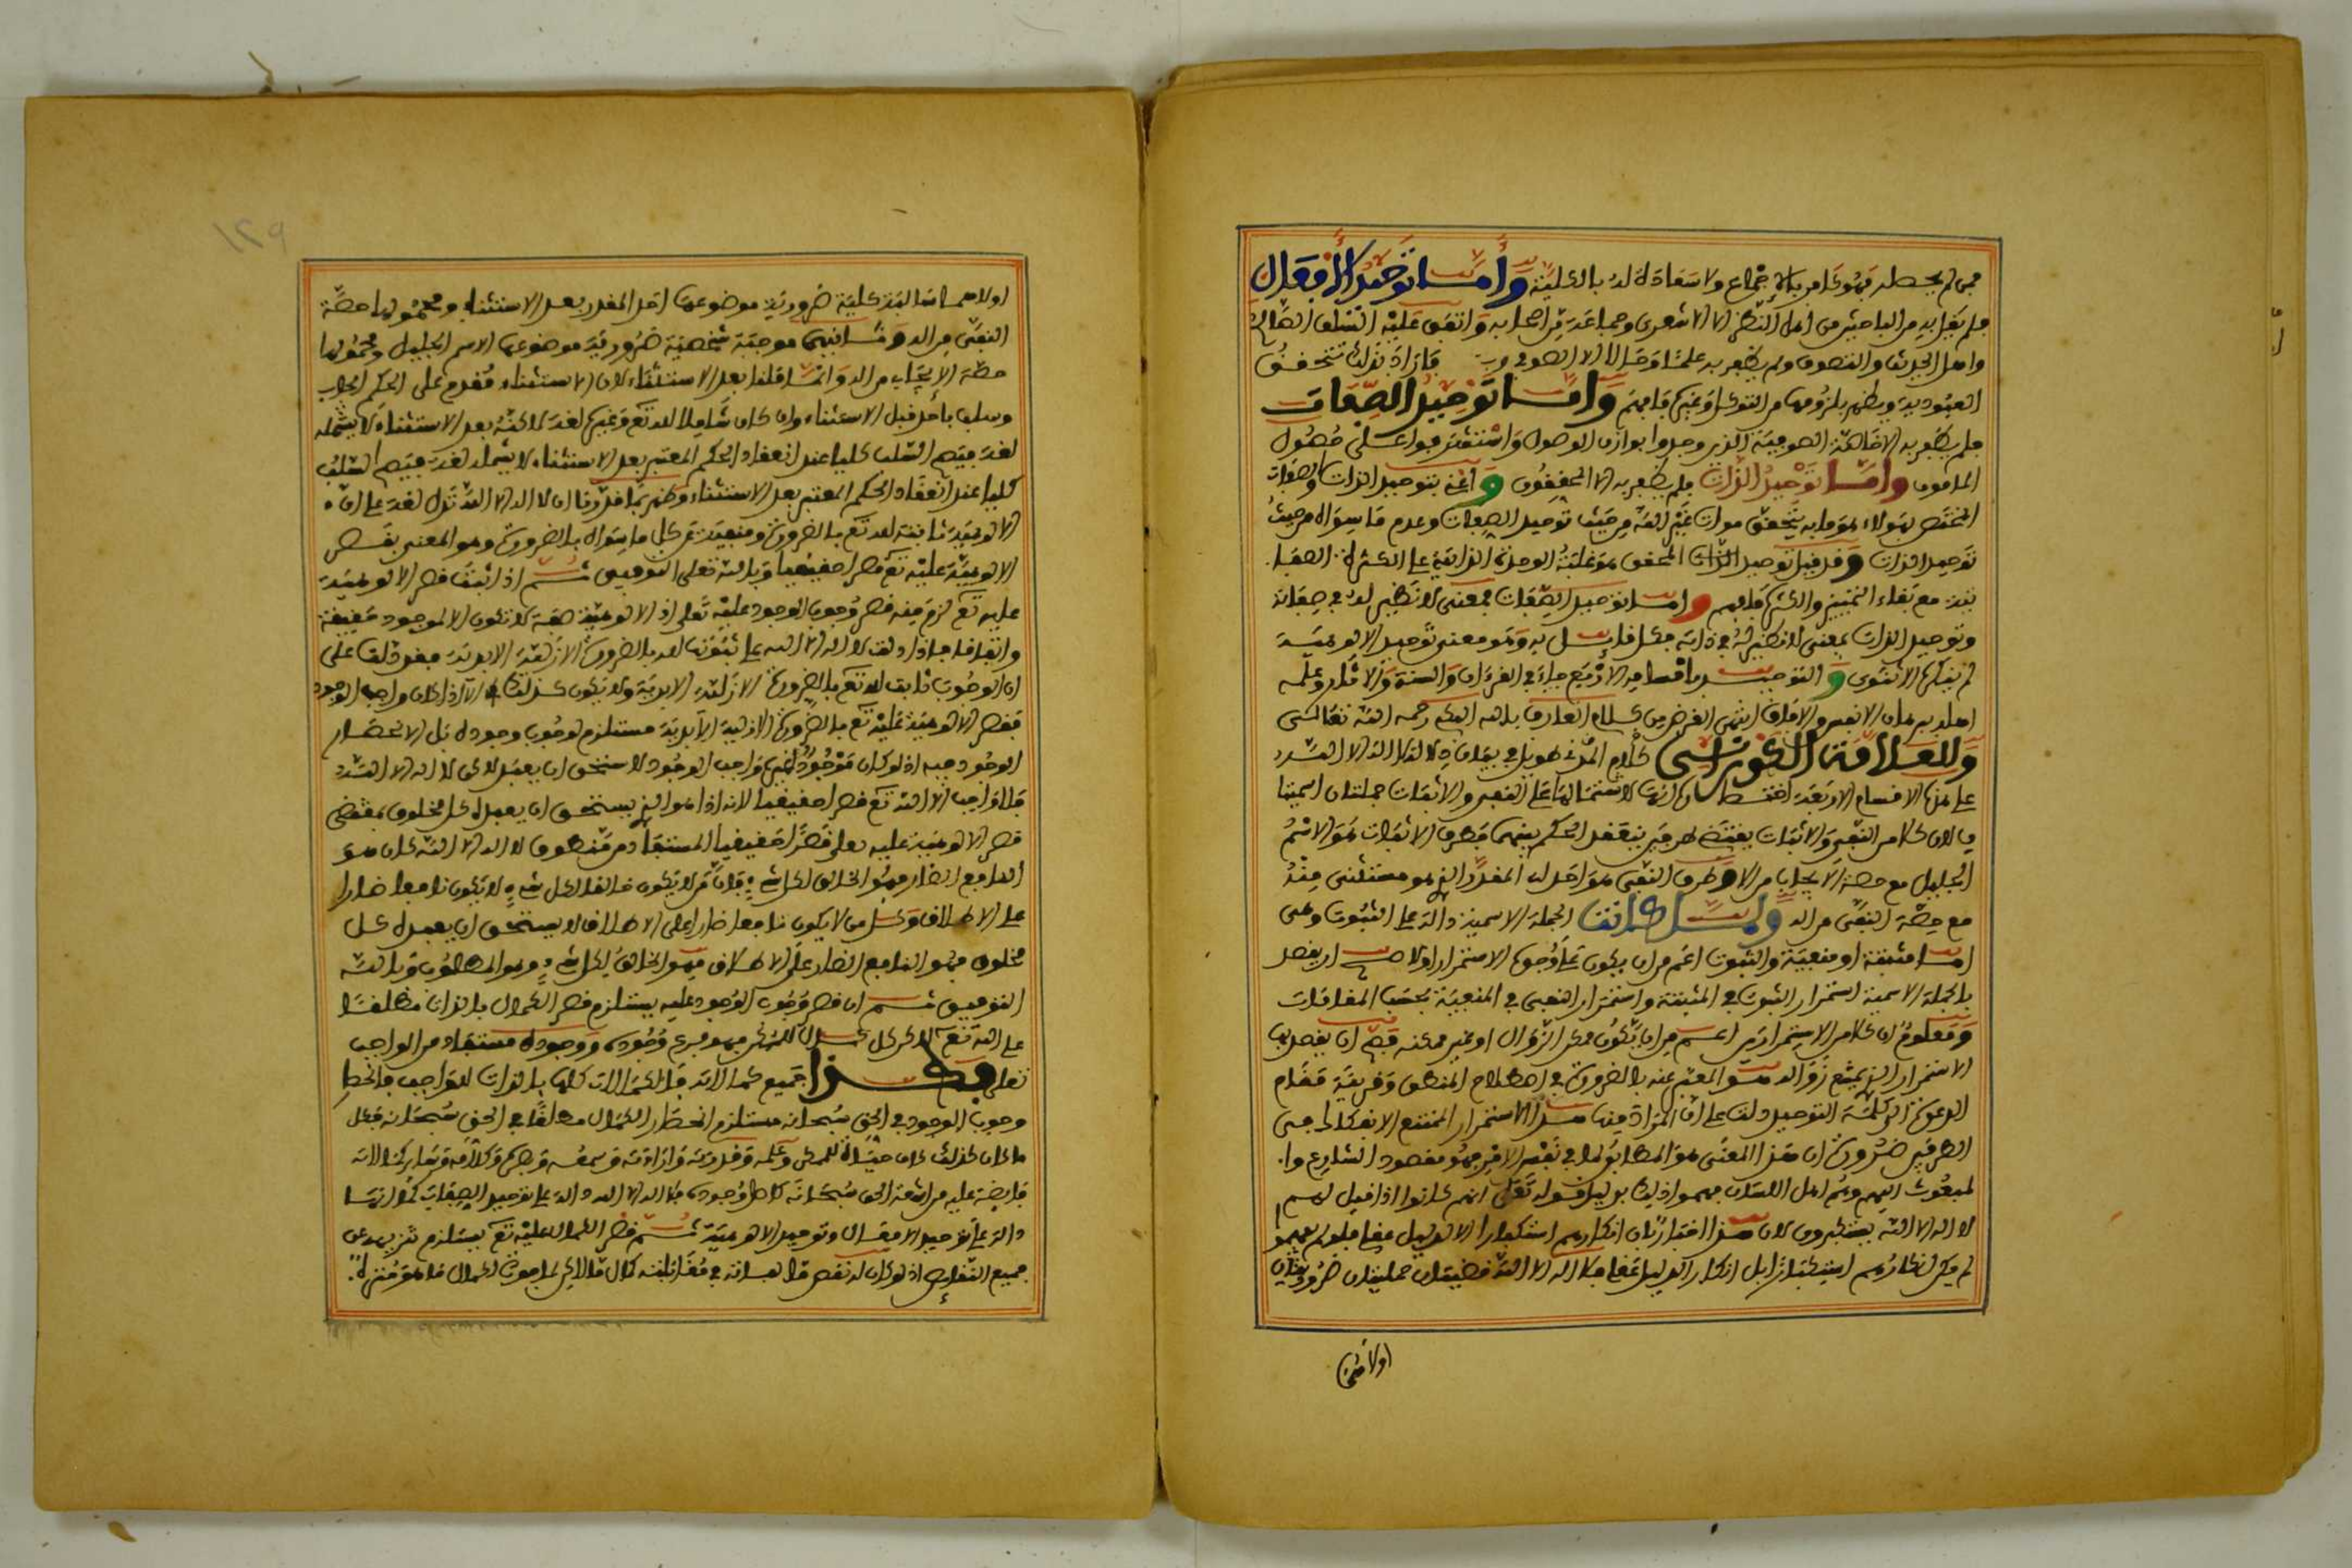 فمن لم يحط به فهو كافر بالإجماع ولا سعادة له بالكلية وأما توحيد الأفعال
فلم يقل به من الباحثين من أهل النظر إلا الأشعري وجماعة من أصحابه واتفق عليه السلف الصالح
وأهل الحديث والتصوف ولم يظفر به علما وحالا إلا الصوفي
العبودية ويظفر بلزومها من التوكل وغيره فافهم وأما توحيد الصفات
فلم يظفر به إلا خاصة الصوفية الذين وجدوا بوارق الوصول واستشرفوا على حصول
المأمون وأما توحيد الذات فلم يظفر به إلا المحققون وأعني بتوحيد الذات والصفات
المختص بهؤلاء هو ما به يتحقق موت غير الله من حيث توحيد الصفات وعدم ما سواه من حيث
توحيد الذات وقد قيل توحيد الذات المحقق هو غلبة الوحدة الذاتية على الكثرة الصفا
تية مع بقاء التمييز والكثرة فافهم وأما توحيد الصفات بمعنى لا نظير له في صفاته
وتوحيد الذات بمعنى لا نظير له في ذاته فكل قائل به وهو معنى توحيد الألوهية
لم ينكره إلا الثنوي والتوحيد بأقسامه الأربع جاء في القرآن والسنة والآثار وعلمه
أهله ببرهان الأنفس والآفاق انتهى الغرض من كلام العارف بالله الحكم رحمه الله تعالى
وللعلامة الغورائي كلام طويل في بيان دلالة لا إله إلا الله
على هذه الأقسام الأربعة
في لأن كلا من النفي والإثبات يقتضي طرفين ينعقد الحكم بينهما فطرف الإثبات هو الاسم
الجليل مع حصة الإيجاب من إلا وطرف النفي هو أحد له المقدر الذي هو مستثنى منه
مع حصة النفي من إلا ولما كانت الجملة الاسمية دالة على الثبوت وهي
إما مثبتة أو منفية والثبوت أعم من أن يكون على وجه الاستمرار أو لا صح أن يقصد
بالجملة الاسمية استمرار الثبوت في المثبتة واستمرار النفي في المنفية بحسب المقامات
ومعلوم أن كلا من الاستمرارين أعم من أن يكون ممكن الزوال أو غير ممكنه فصح أن يقصد بها
الاستمرار الذي يمتنع زواله هو المعبر عنه بالضرورة في اصطلاح المنطق وقرينة مقام
الدعوة إلى كلمة التوحيد دلت على أن المراد فيها هذا الاستمرار الممتنع الانفكاك عن
الطرفين ضرورة أن هذا المعنى هو المطابق لما في نفس الأمر فهو مقصود الشارع وا
لمبعوث إليهم وهم أهل اللسان فهموا ذلك بدليل قوله تعالى إنهم كانوا إذا قيل لهم
لا إله إلا الله يستكبرون لأن هذا إخبار بأن إنكارهم استكبارا لا لدليل فلو لم يفهموا
لم يكن إنكارهم استكبارا بل إنكارا لدليل فلا إله إلا الله قضيتان حمليتان ضروريتان
أولاهما
١٢٩
أولاهما سالبة كلية ضرورية موضوعها أحد المقدر بعد الاستثناء ومحمولها حصة
النفي من إلا وثانيتهما موجبة شخصية ضرورية موضوعها الاسم الجليل ومحمولها
حصة الإيجاب من إلا وإنما قلنا بعد الاستثناء لأن الاستثناء مقدم على الحكم إيجابا
وسلبا بأحد قبل الاستثناء وإن كان شاملا لله تعالى وغيره لغة لكنه بعد الاستثناء لا يشمله
لغة فيتم السلب كليا عند انعقاد الحكم المعتبر بعد الاستثناء لا يشمله لغة فيتم السلب
كليا عند انعقاد الحكم المعتبر بعد الاستثناء وظهر بما قررنا أن لا إله إلا الله تدل لغة على أن
الألوهية ثابتة لله تعالى بالضرورة ومنفية عن كل ما سواه بالضرورة وهو المعني بقصر
الألوهية عليه تعالى قصرا حقيقيا وبالله تعالى التوفيق ثم إذا ثبت قصر الألوهية
عليه تعالى لزم منه قصر وجوب الوجود عليه تعالى إذ الألوهية صفة لا تكون إلا لموجود حقيقة
واتفاقا فإذا دلت لا إله إلا الله على ثبوتها لله بالضرورة الأزلية الأبدية فقد دلت على
أن الوجوب ثابت لله تعالى بالضرورة الأزلية الأبدية ولا يكون كذلك إلا إذا كان واجب الوجود
فقصر الألوهية عليه تعالى بالضرورة الأزلية الأبدية مستلزم لوجوب وجوده بل لانحصار
الوجود فيه إذ لو كان موجود غيره واجب الوجود لاستحق أن يعبد لكن لا إله إلا الله
فلا واجب إلا الله تعالى قصرا حقيقيا لأنه إذا هو الذي يستحق أن يعبده كل مخلوق بمقتضى
قصر الألوهية عليه تعالى قصرا حقيقيا المستفاد من منطوق لا إله إلا الله كان هو
النافع الضار فهو الخالق لكل شيء فإن من لا يكون خالقا لكل شيء لا يكون نافعا ضارا
على الإطلاق وكل من لا يكون نافعا ضارا على الإطلاق لا يستحق أن يعبده كل
مخلوق فهو النافع الضار على الإطلاق فهو الخالق لكل شيء وهو المطلوب وبالله
التوفيق ثم إن قصر وجوب الوجود عليه يستلزم قصر الكمال بالذات مطلقا
على الله تعالى لأن كل كمال للممكن فهو فرع وجوده ووجوده مستفاد من الواجب
تعالى فكذا جميع كمالاته فالكمالات كلها بالذات للواجب فانحصار
وجوب الوجود في الحق سبحانه مستلزم انحصار الكمال مطلقا في الحق سبحانه فكل
ما كان كذلك كان حياة للممكن وعلمه وقدرته وإرادته وسمعه وبصره وكلامه وسائر كمالاته
فائضة عليه من الله الحق سبحانه كأصل وجوده فلا إله إلا الله دالة على توحيد الصفات كما أنها
دالة على توحيد الأفعال وتوحيد الألوهية ثم قصر الكمال عليه تعالى يستلزم تنزيهه عن
جميع النقائص إذ لو كان له نقص